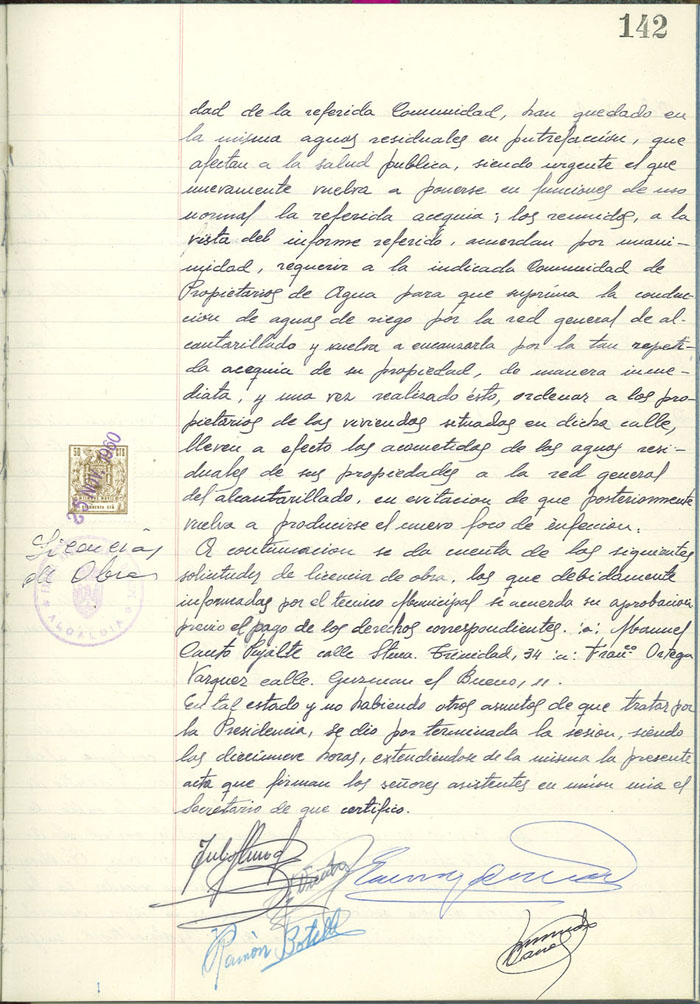 142
dad de la referida Comunidad, han quedado en
la misma aguas residuales en putrefacción, que
afectan a la salud publica, siendo urgente el que
nuevamente vuelva a ponerse en funciones de uso
normal la referida acequia; los reunidos, a la
vista del informe referido, acuerdan por unani-
midad, requerir a la indicada Comunidad de
Propietarios de Agua para que suprima la conduc-
cion de aguas de riego por la red general de al-
cantarillado y vuelva a encauzarla por la tan repeti-
da acequia de su propiedad, de manera inme-
diata, y una vez realizado ésto, ordenar a los pro-
pietarios de las viviendas situadas en dicha calle,
lleven a efecto las acometidas de las aguas resi-
duales de sus propiedades a la red general
del alcantarillado, en evitacion de que posteriormente
vuelva a producirse el nuevo foco de infeccion.
50 CTS
25 NOV. 1960
Licencias
de Obras
ALCALDIA
A continuacion se da cuenta de las siguientes
solicitudes de licencia de obra, las que debidamente
informadas por el tecnico Municipal se acuerda su aprobacion
previo el pago de los derechos correspondientes. :a: Manuel
Canto Pujalte calle Stma. Trinidad, 34 :a: Franco Ortega
Vazquez calle. Guzman el Bueno, 11.
En tal estado y no habiendo otros asuntos de que tratar por
la Presidencia, se dio por terminada la sesion, siendo
las diecinueve horas, extendiendose de la misma la presente
acta que firman los señores asistentes en union mia el
Secretario de que certifico.
Ramón Botella